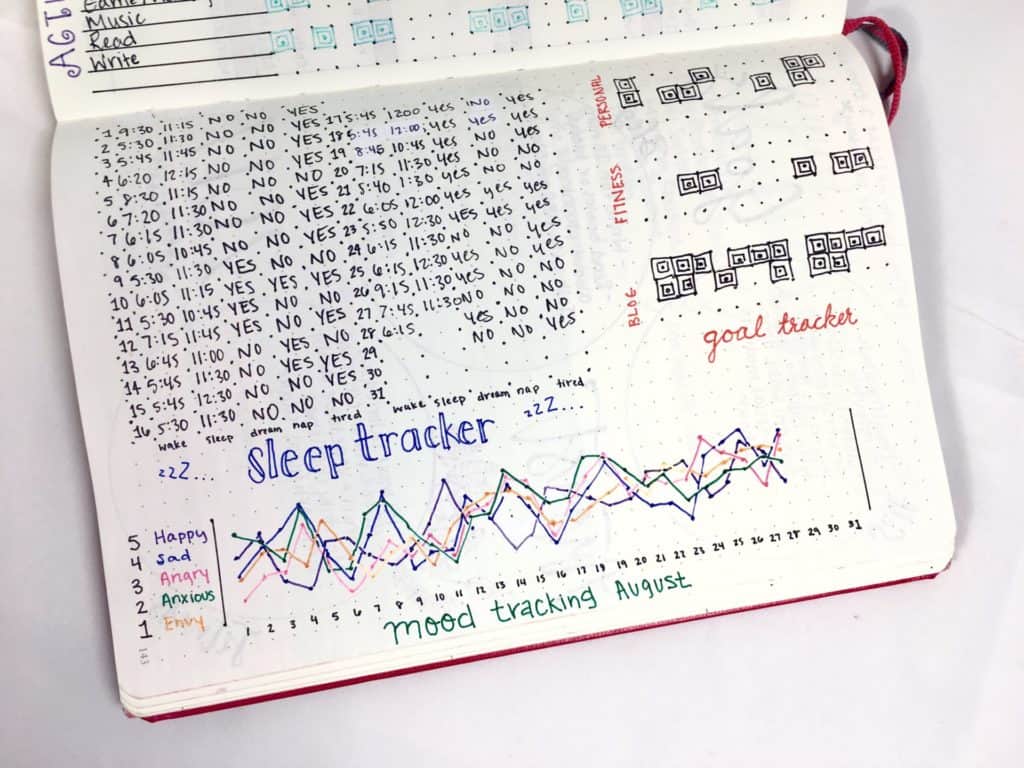 Music
Read
Write
1 9:30 11:15 NO NO YES 17 5:45 1200 yes NO yes
2 5:30 11:30 NO NO YES 18 5:45 12:00 yes yes yes
3 5:45 11:45 NO NO YES 19 8:45 10:45 yes NO yes
4 6:20 12:15 NO NO NO 20 7:15 11:30 yes NO NO
5 8:30 11:15 NO NO YES 21 5:40 1:30 yes NO NO
6 7:20 11:30 NO NO YES 22 6:05 12:00 yes yes yes
7 6:15 11:30 NO NO YES 23 5:50 12:30 yes yes yes
8 6:05 10:45 NO NO NO 24 6:15 11:30 NO NO yes
9 5:30 11:30 YES NO YES 25 6:15 12:30 yes NO yes
10 6:05 11:15 YES YES NO 26 9:15 11:30 yes NO NO
11 5:30 10:45 YES NO YES 27 7:45 11:30 NO NO NO
12 7:15 11:45 YES NO NO 28 6:15 yes NO NO
13 6:45 11:00 NO YES YES 29 NO NO yes
14 5:45 11:30 NO YES YES 30
15 5:45 12:30 NO NO YES 31
16 5:30 11:30 NO NO NO
wake sleep dream nap tired wake sleep dream nap tired
zzz... sleep tracker zzz...
PERSONAL
FITNESS
BLOG
goal tracker
5 Happy
4 Sad
3 Angry
2 Anxious
1 Envy
1 2 3 4 5 6 7 8 9 10 11 12 13 14 15 16 17 18 19 20 21 22 23 24 25 26 27 28 29 30 31
mood tracking August
143